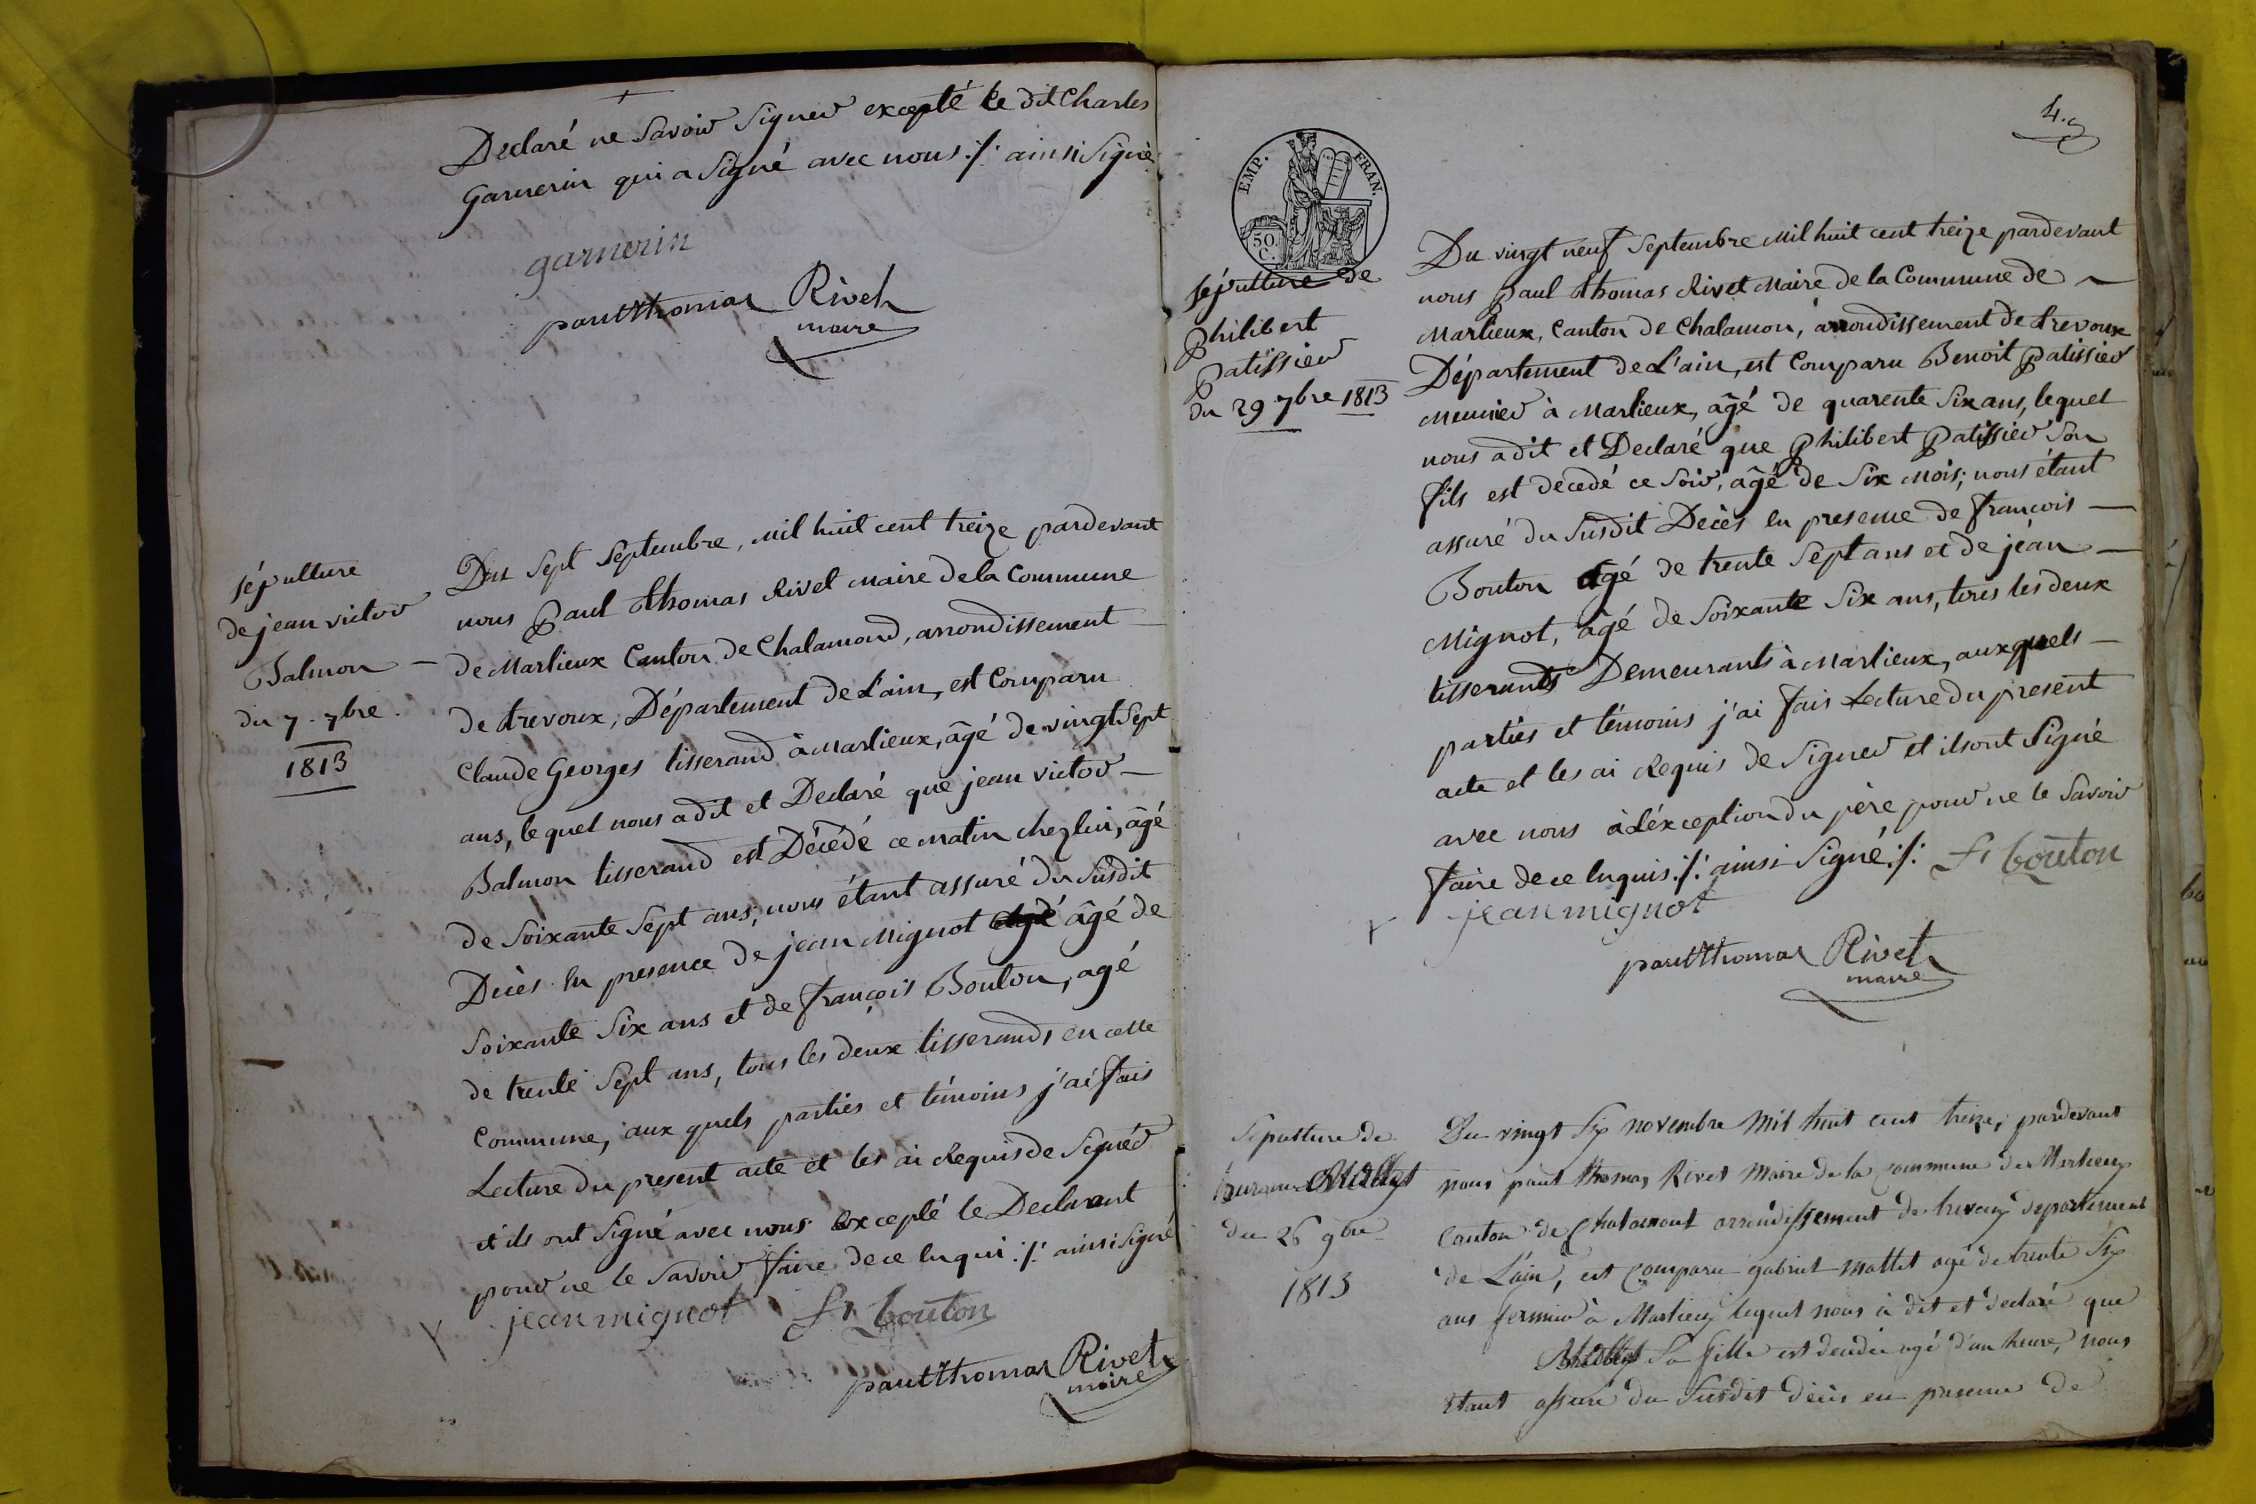 Declaré ne Savoir Signer excepté le dit Charles
Garnerin qui a Signé avec nous ./. ainsi Signé
garnerin
paul thomas Rivet
maire
sépulture
de jean victor
Balmon —
du 7. 7bre.
1813
Du Sept Septembre, mil huit cent treize pardevant
nous Paul Thomas Rivet Maire de la Commune
de Marlieux Canton de Chalamond, arrondissement —
de trevoux, Département de L'ain, est Comparu
Claude Georges tisserand à Marlieux, âgé de vingt Sept
ans, lequel nous a dit et Declaré que jean victor —
Balmon tisserand est Décédé ce matin chez lui, âgé
de Soixante Sept ans, nous étant assuré du Susdit
Decès en presence de jean Mignot âgé de
Soixante Six ans et de françois Bouton, agé
de trente Sept ans, tous les deux tisserands en cette
Commune, aux quels parties et témoins j'ai fais
Lecture du present acte et les ai Requis de Signer
et ils ont Signé avec nous excepté le Declarant
pour ne le Savoir faire de ce enqui ./. ainsi Signé
jean mignot fs bouton
paul thomas Rivet
maire
4.
EMP. FRAN.
50.
C.
sépulture de
Philibert
Patissier
du 29 7bre 1813
Du vingt neuf Septembre mil huit cent treize pardevant
nous Paul Thomas Rivet Maire de la Commune de ~
Marlieux, Canton de Chalamon, arrondissement de trevoux
Département de L'ain, est Comparu Benoit Patissier
Meunier à Marlieux, âgé de quarente Six ans, lequel
nous a dit et Declaré que Philibert Patissier Son
fils est décedé ce Soir, âgé de Six Mois; nous étant
assuré du Susdit Decès en presence de françois —
Bouton Agé de trente Sept ans et de jéan —
Mignot, âgé de Soixante Six ans, tous les deux
tisserants Demeurants à Marlieux, aux quels —
parties et témoins j'ai fais Lecture du present
acte et les ai Requis de Signer et ils ont Signé
avec nous à L'éxception du père pour ne le Savoir
faire de ce enquis ./. ainsi Signé ./. fs bouton
jean mignot
paul thomas Rivet
maire
Sepulture de
du 26 9bre
1813
Du vingt Six novembre mil huit cent treize, pardevant
nous paul thomas Rivet Maire de la Commune de Marlieux
Canton de Chalamont arrondissement de trevoux departement
de L'ain, est Comparu gabriel mallet agé de trente Six
ans fermier à Marlieux lequel nous à dit et declaré que
Sa fille est decedée agé d'un heure, nous
étant assuré du Susdit décès en presence de